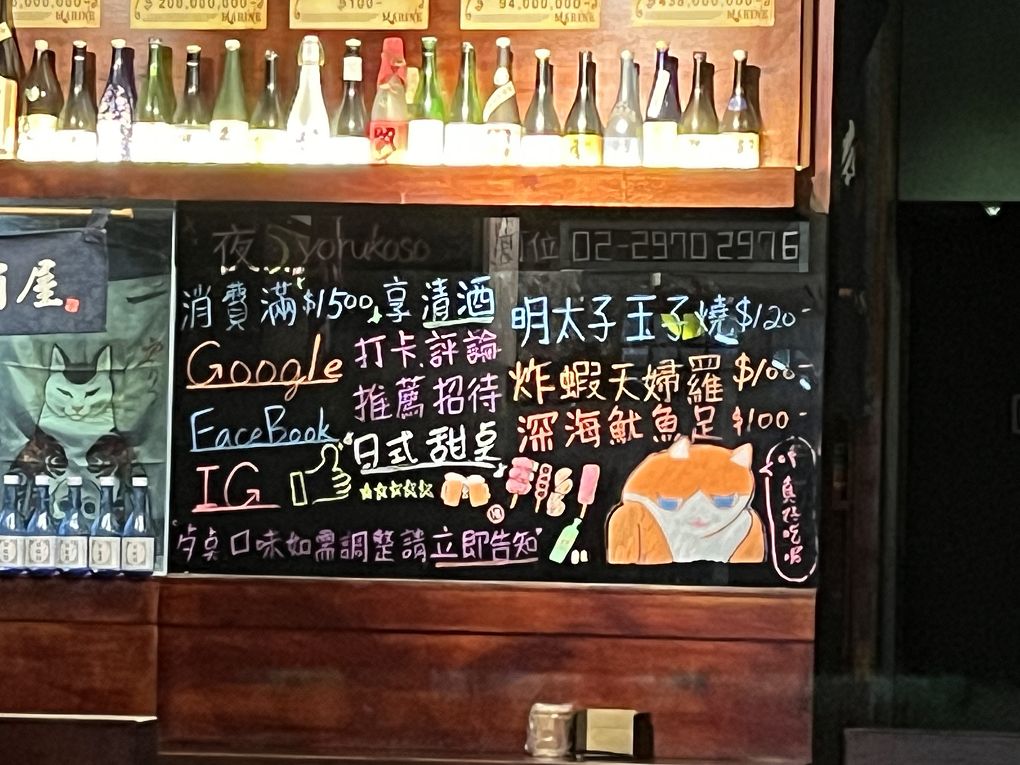 200,000,000-
MARINE
$100-
MARINE
$ 94,000,000-
MARINE
MARINE
屋
夜 yorukoso
位 02-2970 2976
消費滿$1500享清酒
Google 打卡評論
推薦招待
FaceBook 日式甜桌
IG
桌口味如需調整請立即告知
明太子玉子燒$120-
炸蝦天婦羅$100-
深海魷魚足$100-